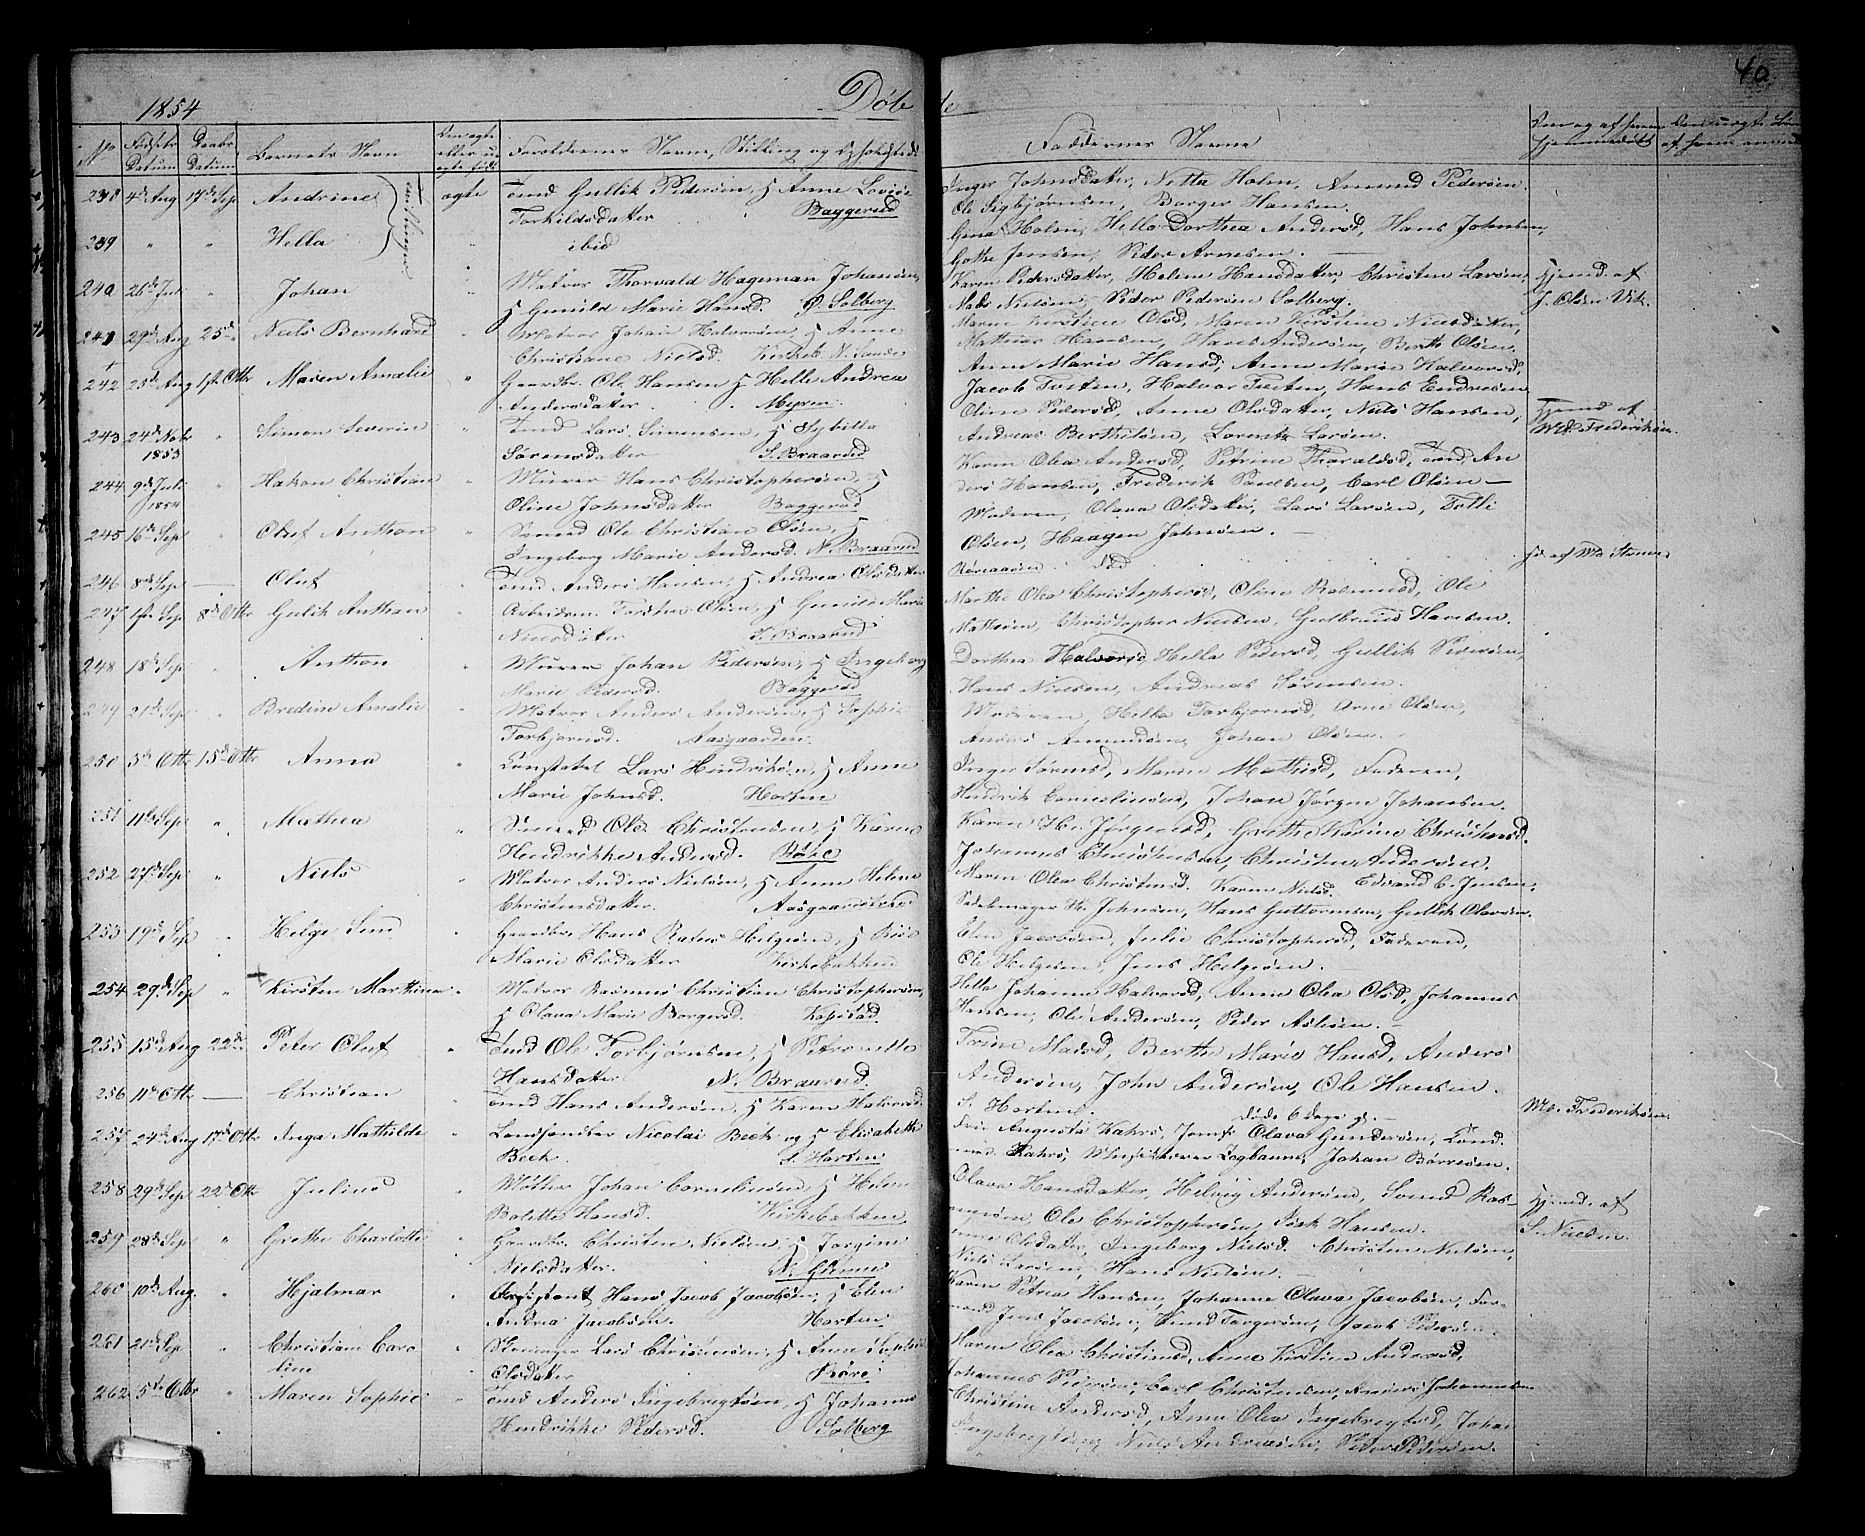 1854 Døbte 40.
No Fødsels Datum Daabs Datum Barnets Navn Forældrenes Navne, Stilling og Opholdssted Faddernes Navne
238 4de Aug 17de Sep Andrine Tvillinger ægte Tmd Gullik Pedersøn, H Anne Lovise
Torkildsdatter Baggerud
Inger Johnsdatter, Netta Holm, Amund Pedersøn
Ole Sigbjørnsen, Borger Hansen.
239 " " Hella " ibid
Gina Holm, Hella Dorthea Andersd, Hans Johnsen,
Gothe Jensen, Peder Arnesen.
240 26de Juli " Johan " Matros Thorvald Hageman Johansøn,
H Gunild Marie Hansd. Ø. Solberg
Karen Pedersdatter, Helene Hansdatter, Christen Larsøn, Hjemd. af
Mads Nielsen, Peder Pedersøn Solberg. J. Olsen Vik.
241 29de Aug 25de " Niels Bernhard " Matros Johan Halvorsøn, H Anne
Christiane Nielsd. Kirkeb. N. Sande
Maren Kirstine Olsd, Maren Kirstine Nielsdatter,
Mathias Hansen, Hans Andersøn, Bernt Olsen.
242 25de Aug 1ste Otbr Maren Amalie " Gaardbr. Ole Hansen, H Helle Andrea
Andersdatter. Myren.
Anne Marie Hansd, Anne Marie Halvorsd,
Jacob Tveten, Halvor Tveten, Hans Endresen
243 24de Nobr 1853 " Simon Severin " Tmd Lars Simensen, H Sybilla
Sørensdatter S. Braarud
Oline Pedersd, Anne Olsdatter, Niels Hansen, Hjemd af
Andreas Berthelsøn, Lorentz Larsøn. Md. Frederiksen.
244 9de Juli 1854 " Hakon Christian " Murer Hans Christophersøn, H
Oline Johnsdatter Baggerød
Karen Olea Andersd, Petrine Tharaldsd, Tmd. An
ders Hansen, Frederik Poulsen, Carl Olsen —
245 16de Sep " Oluf Anthon " Smed Ole Christian Olsen, H
Ingeborg Marie Andersd. N. Braarud
Moderen, Olava Olsdatter, Lars Larsen, Tolli
Olsen, Haagen Johnsøn. —
246 8de Sep — Oluf " Tmd Anders Hansen, H Andrea Olsdatter
død
247 1ste Sep 8de Otbr Gulik Anthon " Arbeidsm. Torsten Olsen, H Gunild Marie
Nielsdatter N. Braarud
Marthe Olea Christophersd, Oline Rasmusd, Ole
Mathisøn, Christopher Nielsen, Gulbrand Hansen.
248 18de Sep " Anthon " Murer Johan Pedersøn, H Ingeborg
Marie Pedersd. Baggerød
Dorthea Halvorsd, Hella Pedersd, Gullik Pedersøn,
Hans Nielsen, Andreas Sørensen.
249 21de Sep " Bredine Amalie " Matros Anders Andersøn, H Sophie
Torbjørnsd. Aasgaarden.
Moderen, Hella Torbjørnsd, Arne Olsen,
Anders Amundsøn, Johan Olsen. —
250 5de Otbr 15de Otbr Anna " Constabel Lars Hendriksøn, H Anne
Marie Johnsd. Horten
Inger Sørensd, Maren Mathisd, Faderen,
Hendrik Corneliusøn, Johan Jørgen Johansen.
251 11te Sep " Mathea " Smed Ole Christensøn, H Karen
Hendrikke Andersd.
Karen H. Jørgensd, Grethe Karine Christensd.
Johannes Christensen, Christen Andersøn.
252 27de Sep " Niels " Matros Anders Nielsøn, H Anne Helene
Christensdatter. Aasgaarden
Maren Olea Christensd. Karen Nielsd. Edvard C. Jensen,
Sadelmager H. Johnsøn, Hans Guttormsen, Gullik Olavsen.
253 19de Sep " Helge Smd " Gaardbr. Hans Helgesøn, H
Marie Olsdatter Kirkebakken
Elen Jacobsøn, Julie Christophersd, Faderen,
Ole Helgesen, Jens Helgesøn. —
254 29de Sep " Kirsten Marthine " Matros Rasmus Christian Christophersøn,
H Olava Marie Borgersd. Kopstad
Hella Johanne Halvorsd, Anne Olea Olsd, Johannes
Hansen, Ole Andersøn, Peder Aslesen. —
255 15de Aug 22de Peter Oluf " Tmd Ole Torbjørnsen, H Petronelle
Hansdatter N. Braarud.
Trine Madsd, Berthe Marie Hansd, Anders
Andersøn, John Andersøn, Ole Hansen.
256 11te Otbr — Christian " Tmd Hans Andersøn, H Karen Halvorsd.
S. Horten. døde 6 Dage gl. — Md. Frederiksen.
257 24de Aug 17de Otbr Inga Mathilde " Landhandler Nicolai Bech og H Elisabeth
Bech. S. Horten
Frue Augusta Kahrs, Jomfr Olava Gundersøn,
Kahrs, Johan Børresøn.
258 29de Sep 22de Otbr Julius " Møller Johan Corneliusøn, H Helene
Bolette Hansd. Kirkebakken
Olava Hansdatter, Helvig Andersøn, Svend Ras-
musøn, Ole Christophersøn, Isak Hansen. Hjemd. af S. Nielsen.
259 28de Sep " Grethe Charlotte " Gaardbr. Christen Nielsøn, H Jorgine
Nielsdatter. N. Glenne
Olsdatter, Ingeborg Nielsd. Christen Nielsøn,
Niels Larsøn, Hans Nielsøn. —
260 10de Aug. " Hjalmar " Assistent Hans Jacob Jacobsøn, H Elen
Andrea Jacobsøn. Horten
Karen Petrea Hansen, Johanne Olava Jacobsøn, For-
mand Jens Jacobsøn, Knud Torgersøn, Jacob Pedersøn
261 21de Sep " Christiane Caro " Lars Christensøn, H Anne Sophie
line Olsdatter
Maren Olea Christensd, Anne Kirstine Andersd,
Johannes Pedersøn, Carl Christensen, Anders Johannesen
262 5te Otbr " Maren Sophie " Tmd Anders Ingebregtsøn, H Johanne
Hendrikke Pedersd. Solberg
Christine Andersd, Anne Olea Ingebregtsd, Johan
Ingebregtsen, Niels Andreasen, Peder Pedersøn.